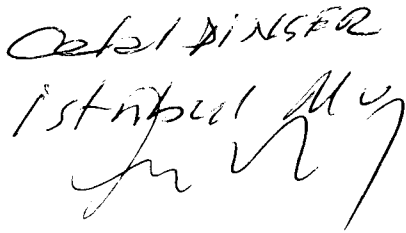 Celal DİNÇER
İstanbul Mv